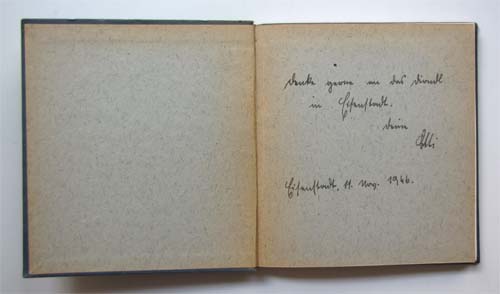 Denke gerne an das Dirndl
in Eisenstadt.
Deine
Elli
Eisenstadt, 11. Nov. 1946.